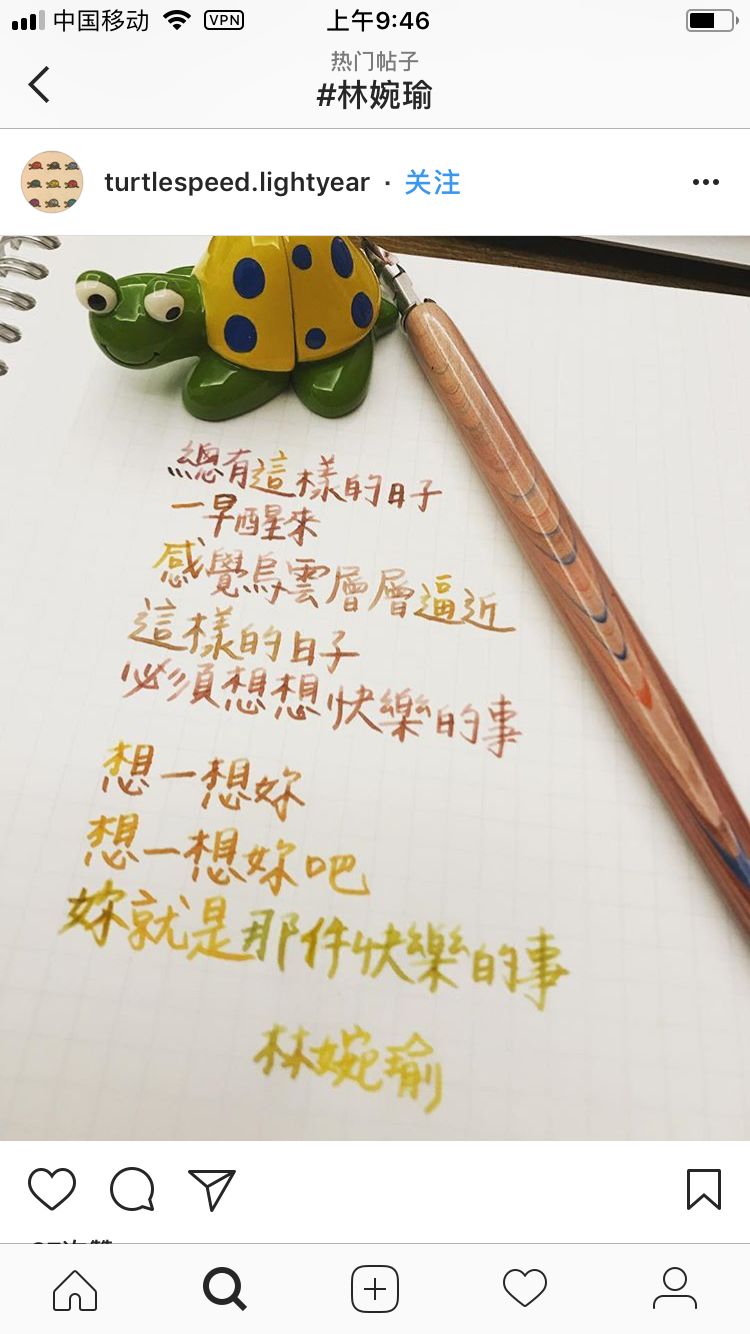 中国移动 VPN 上午9:46
热门帖子
#林婉瑜
turtlespeed.lightyear · 关注
總有這樣的日子
一早醒來
感覺烏雲層層逼近
這樣的日子
必須想想快樂的事
想一想妳
想一想妳吧
妳就是那件快樂的事
林婉瑜